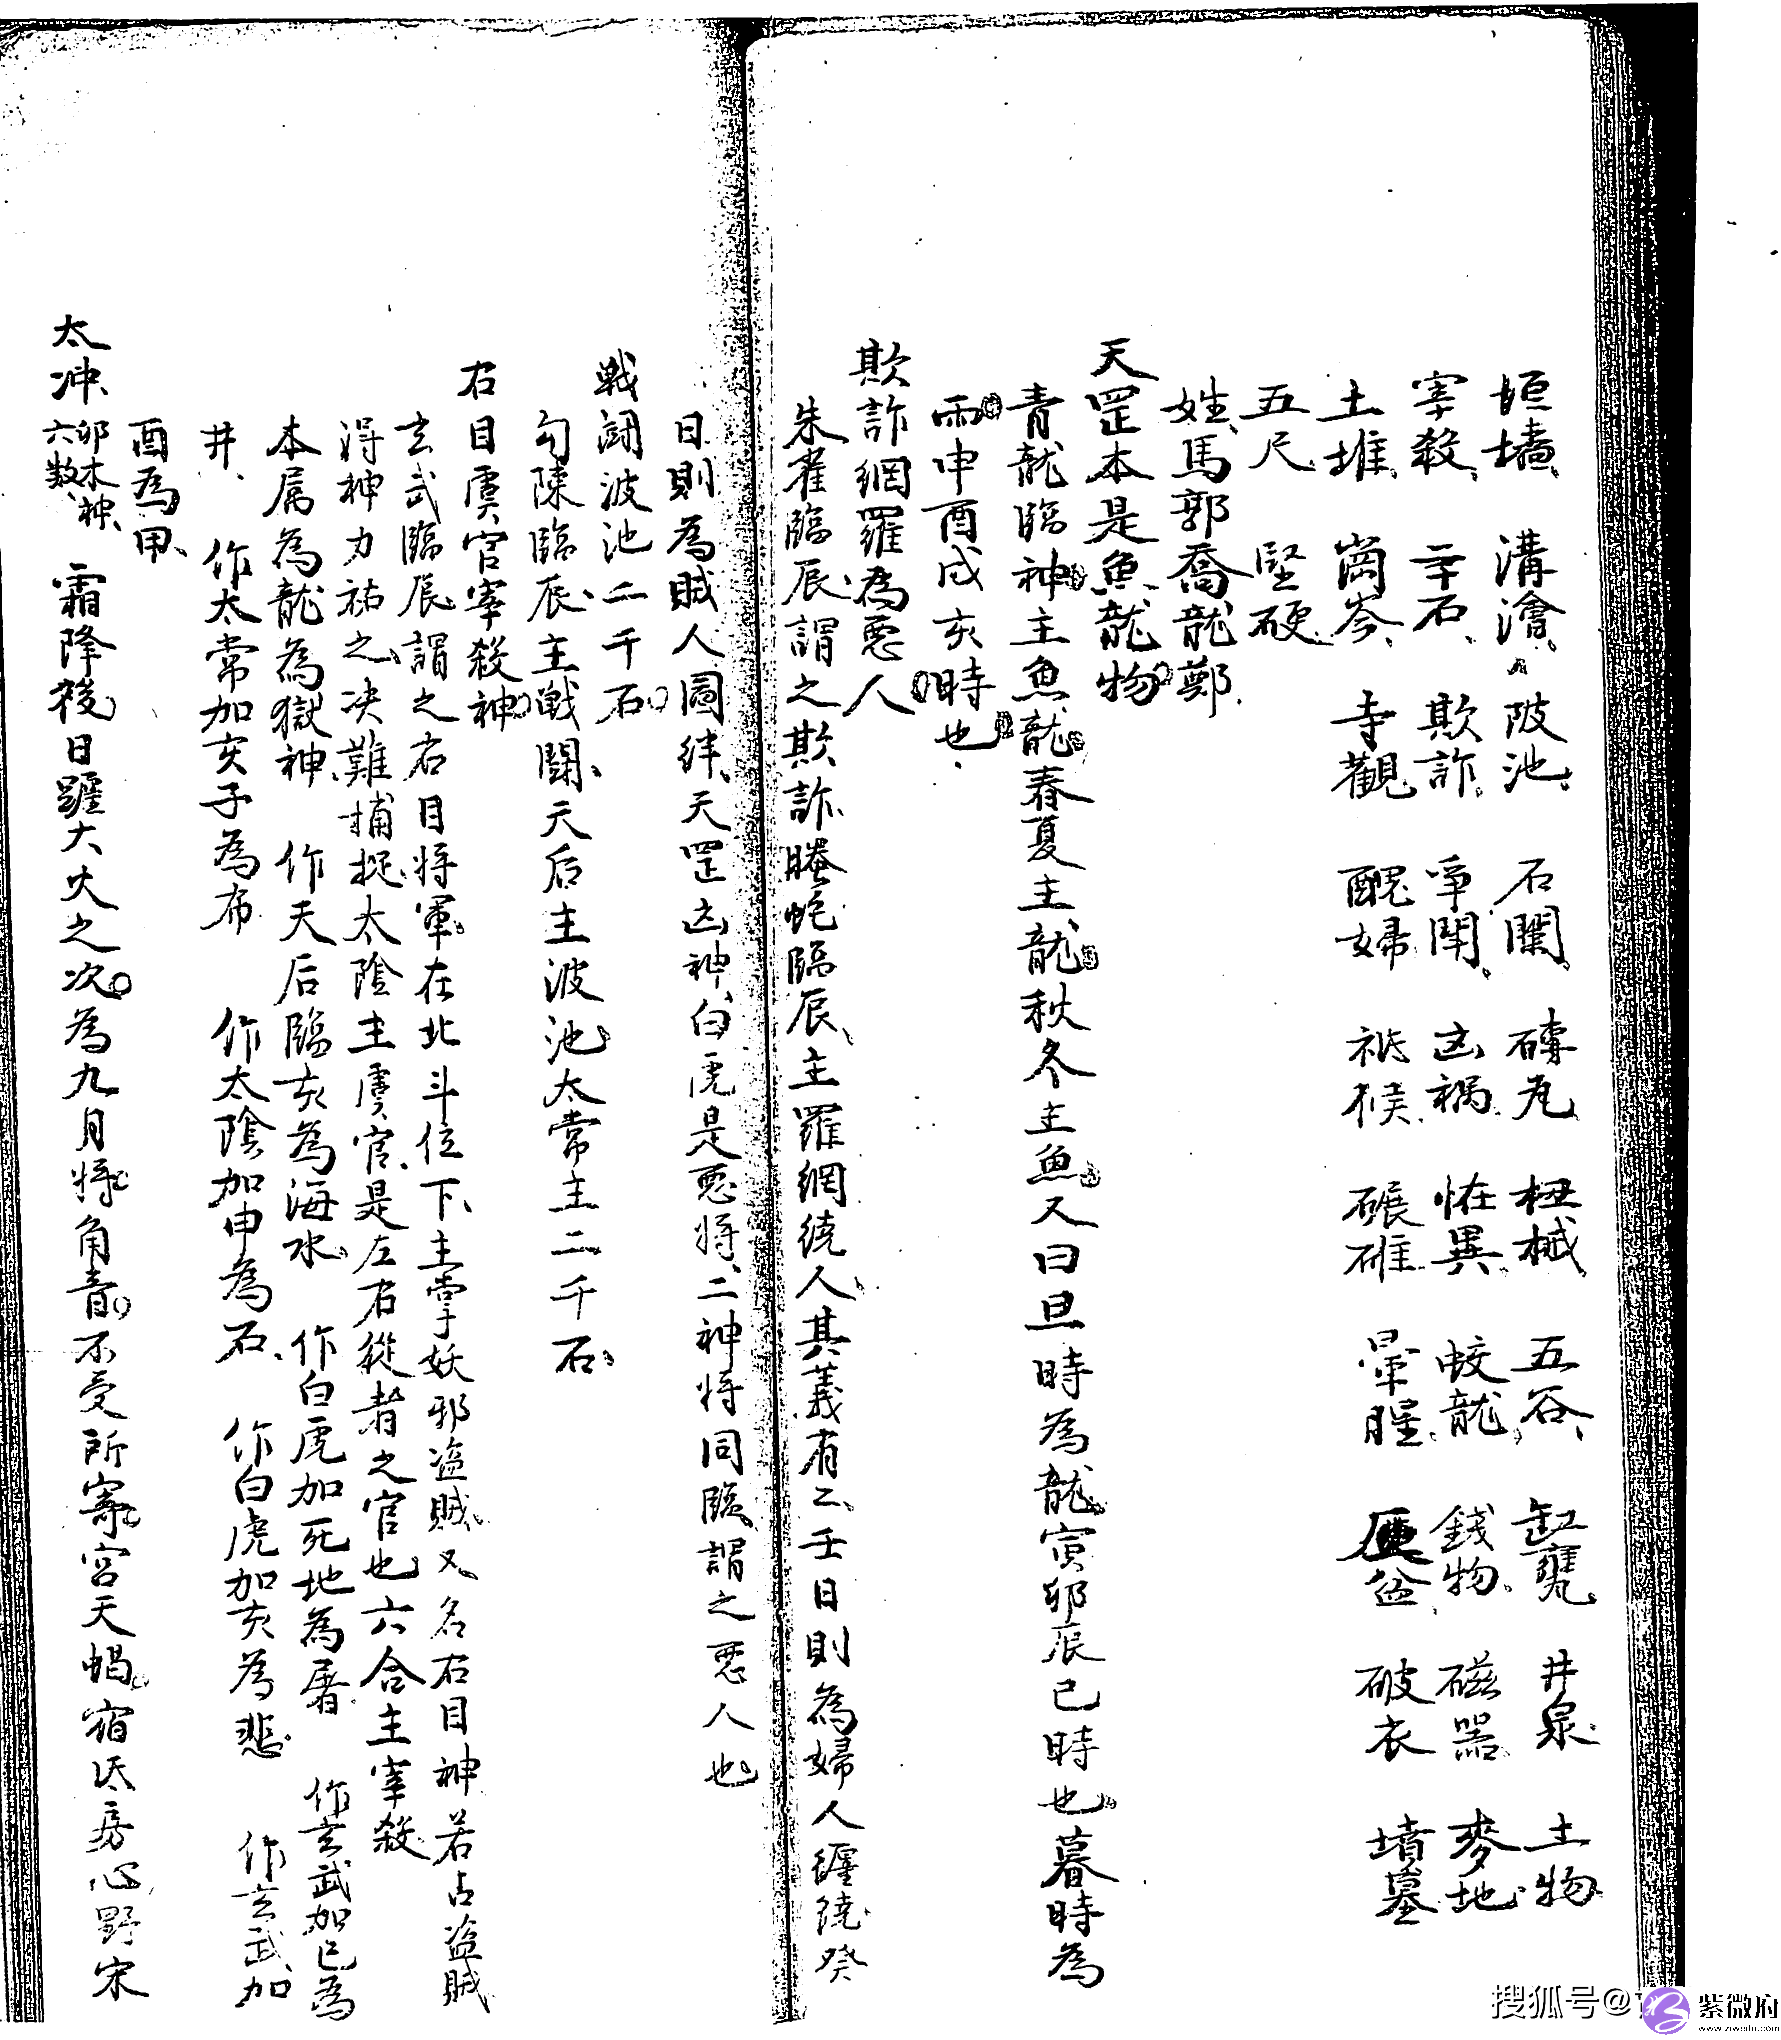 垣墻 溝澮 陂池 石闌 磚瓦 杻械 五谷 缸甕 井泉 土物
宰殺 二千石 欺詐 爭鬪 凶禍 怪異 蛟龍 錢物 磁器 麥地
土堆 崗岑 寺觀 醜婦 碾碓 盆 破衣 墳墓
五尺 堅硬
姓馬郭喬龍鄭
天罡本是魚龍物
青龍臨神主魚龍春夏主龍秋冬主魚又曰旦時為龍寅卯辰巳時也暮時為
雨申酉戌亥時也
欺詐網羅為惡人
朱雀臨辰謂之欺詐螣蛇臨辰主羅網繞人其義有二壬日則為婦人纏繞癸
日則為賊人圖絆天罡凶神白虎是惡將二神將同臨謂之惡人也
戰鬪波池二千石
勾陳臨辰主戰鬪天后主波池太常主二千石
右目虞官宰殺神
玄武臨辰謂之右目將軍在北斗位下主掌妖邪盜賊又名右目神若占盜賊
得神力祐之決難捕捉太陰主虞官是左右從者之官也六合主宰殺
本属為龍為獄神 作天后臨亥為海水 作白虎加死地為屠 作玄武加巳為
井 作太常加亥子為布 作太陰加申為石 作白虎加亥為悲 作玄武加
酉為甲
太冲卯木神六數 霜降後日躔大火之次為九月將角音不受所寄宮天蝎宿氐房心野宋
搜狐号@
紫微府
www.ziweifu.com